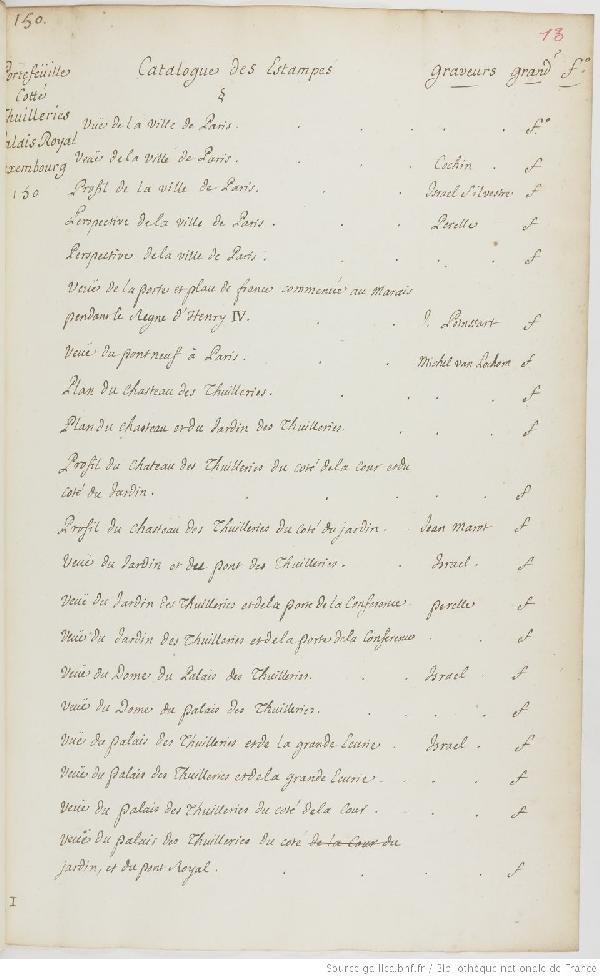 150.
13
Portefeüille
Cotté
Thuilleries
Palais Royal
Luxembourg
150
Catalogue des Estampes graveurs grand f.º
§
Veüe de la ville de Paris. f.º
Veüe de la ville de Paris. Cochin. f
Profil de la ville de Paris. Israel Silvestre f
Perspective de la ville de Paris. Perelle f
Perspective de la ville de Paris. f
Veüe de la porte et place de france commencée au Marais
pendant le Regne d'Henry IV. J. Poinssart f
Veüe du pont neuf à Paris. Michel van Lochom f
Plan du chasteau des Thuilleries. f
Plan du chasteau et du Jardin des Thuilleries. f
Profil du chateau des Thuilleries du coté de la Cour et du
coté du Jardin. f
Profil du chasteau des Thuilleries du coté du jardin. Jean Marot f
Veüe du Jardin et du pont des Thuilleries. Israel. f
Veüe du Jardin des Thuilleries et de la porte de la Conference perelle f
Veüe du Jardin des Thuilleries et de la porte de la Conference f
Veüe du Dome du Palais des Thuilleries. Israel f
Veüe du Dome du palais des Thuilleries. f
Veüe du palais des Thuilleries et de la grande Ecurie. Israel. f
Veüe du palais des Thuilleries et de la grande Ecurie. f
Veüe du palais des Thuilleries du coté de la Cour. f
Veüe du palais des Thuilleries du coté de la Cour du
jardin, et du pont Royal. f
I
Source gallica.bnf.fr / Bibliothèque nationale de France